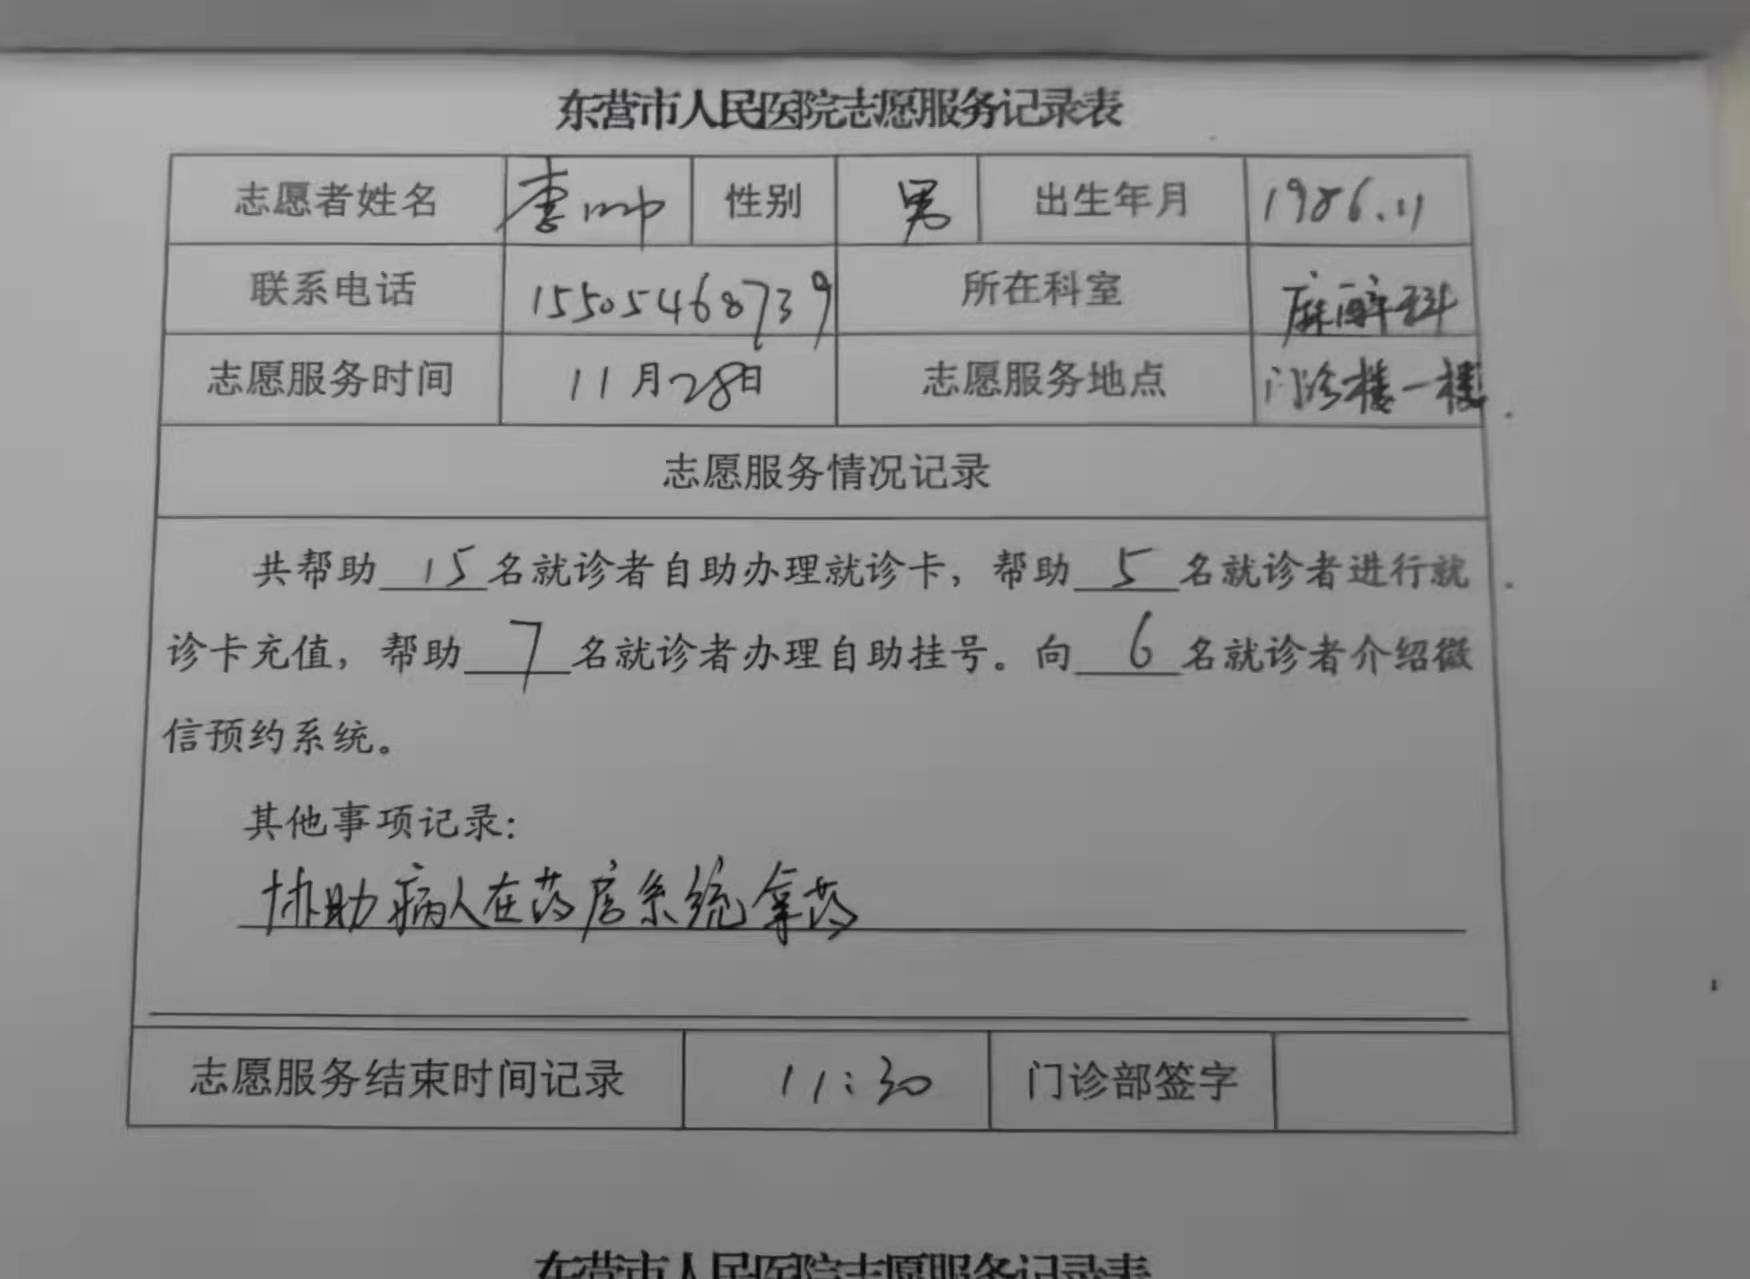 东营市人民医院志愿服务记录表
志愿者姓名 李帅 性别 男 出生年月 1986.11
联系电话 15505468739 所在科室 麻醉科
志愿服务时间 11月28日 志愿服务地点 门诊楼一楼
志愿服务情况记录
共帮助 15 名就诊者自助办理就诊卡，帮助 5 名就诊者进行就
诊卡充值，帮助 7 名就诊者办理自助挂号。向 6 名就诊者介绍微
信预约系统。
其他事项记录：
协助病人在药房系统拿药
志愿服务结束时间记录 11:30 门诊部签字
东营市人民医院志愿服务记录表